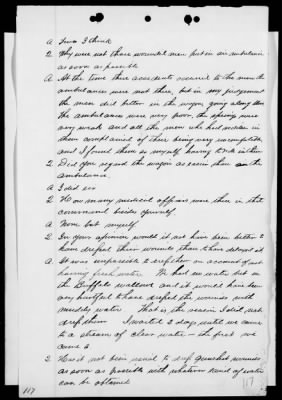 A From I think
Q Why were not these wounded men put in an ambulance
as soon as possible
A At the time these accidents occurred to the men the
ambulances were not there, but in my judgement
the men did better in the wagon, going along than
the ambulances were very poor, the springs were
very weak and all the men who had ridden in
them complained of their being very uncomfortable
and I found them so myself having to ride in them
Q Did you regard the wagon as easier than the
ambulance
A I did sir
Q How many medical officers were there in that
command besides yourself
A None but myself
Q In your opinion would it not have been better to
have dressed their wounds, than to have delayed it
A It was impossible to dress them on account of not
having fresh water. We had no water but in
the Buffalo wallows and it would have been
very hurtful to have dressed the wounds with
muddy water That is the reason I did not
dress them I waited 2 days until we came
to a stream of clear water - the first we
came to
Q Has it not been usual to dress gunshot wounds
as soon as possible with whatever kind of water
can be obtained
117
117